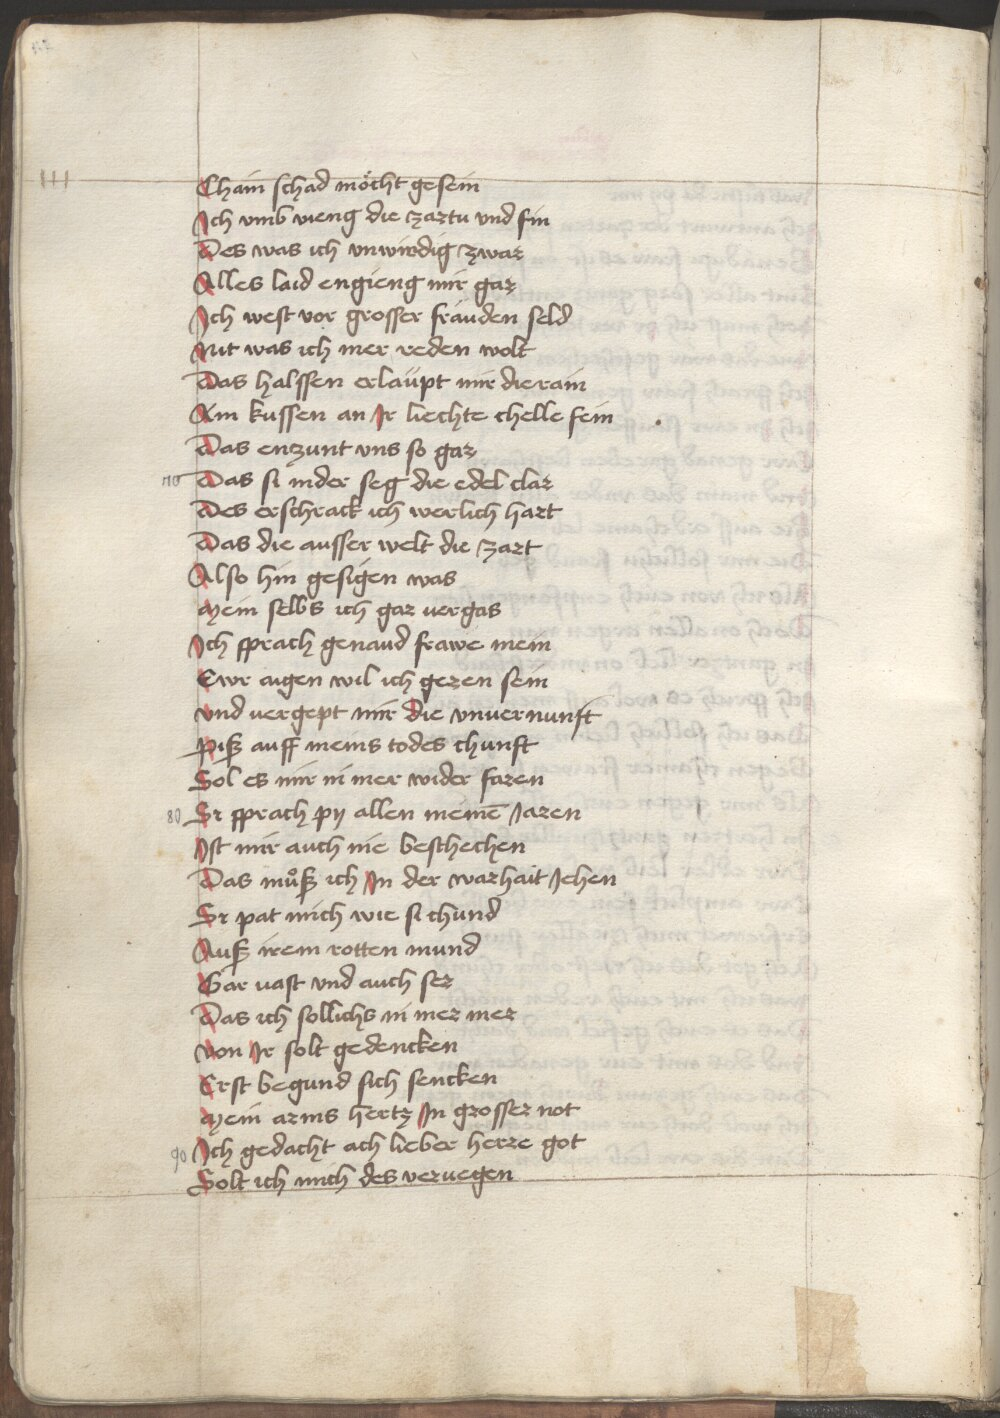 Chain schad möcht gesein
Ich vmb vieng die zartu vnd fin
Des was ich vnwirdig zwar
Alles laid engieng mir gar
Ich west vor grosser fräuden seld
Nit was ich mer reden wolt
Das halssen erlaüpt mir die rain
Am kussen an Ir liechte chelle fein
Das enzunt vns so gar
70 Das si inder seg die edel clar
Des erschrack ich werlich hart
Das die ausser welt die zart
Also hin gesigen was
Mein selbs ich gar vergas
Ich sprach genaud frawe mein
Ewr aigen wil ich geren sein
Vnd vergept mir die vnuernunft
Piß auff meins todes chunft
Sol es mir nimer wider faren
80 Sr sprach py allen meinē Jaren
Ist mir auch nie beschechen
Das můß ich In der warhait Jehen
Sr pat mich wie si chund
Auß irem rotten mund
Gar vast vnd auch ser
Das ich sollichs nimer mer
Von Ir solt gedencken
Erst begund sich sencken
Mein arms hertz In grosser not
90 Ich gedacht ach lieber herre got
Solt ich mich des veruegen